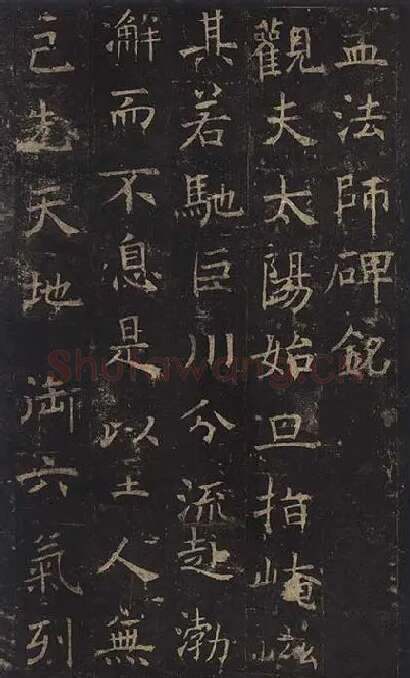 孟法師碑銘
觀夫太陽始旦指崦嵫
其若馳巨川分流赴渤
澥而不息是以至人無
己先天地御六氣列
Shufawang.cn